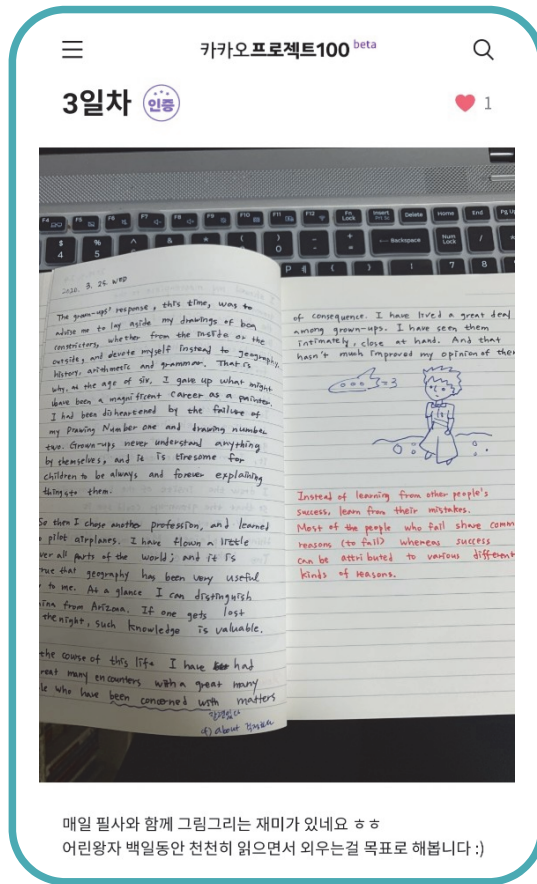 카카오프로젝트100 beta
3일차 인증
1
F4 F5 F6 F7 F8 F9 F10 F11 F12 Fn Lock Insert Prt Sc Delete Home End Pg Up
$ 4 % 5 ^ & * ( ) 0 - + = Backspace Num Lock /
P { [ } ] 7 8
2020. 3. 25. WED
The grown-ups' response, this time, was to
advise me to lay aside my drawings of boa
constrictors, whether from the inside or the
outside, and devote myself instead to geography,
history, arithmetic and grammar. That is
why, at the age of six, I gave up what might
have been a magnificent career as a painter.
I had been disheartened by the failure of
my Drawing Number one and drawing number
two. Grown-ups never understand anything
by themselves, and it is tiresome for
children to be always and forever explaining
things to them.
So then I chose another profession, and learned
pilot airplanes. I have flown a little
ver all parts of the world; and it is
rue that geography has been very useful
to me. At a glance I can distinguish
ina from Arizona. If one gets lost
the night, such knowledge is valuable.
the course of this life I have had
reat many encounters with a great many
le who have been concerned with matters
관련있다
about
of consequence. I have lived a great deal
among grown-ups. I have seen them
intimately, close at hand. And that
hasn't much improved my opinion of them
Instead of learning from other people's
success, learn from their mistakes.
Most of the people who fail share comm
reasons (to fail) whereas success
can be attributed to various different
kinds of reasons.
매일 필사와 함께 그림그리는 재미가 있네요 ㅎㅎ
어린왕자 백일동안 천천히 읽으면서 외우는걸 목표로 해봅니다 :)